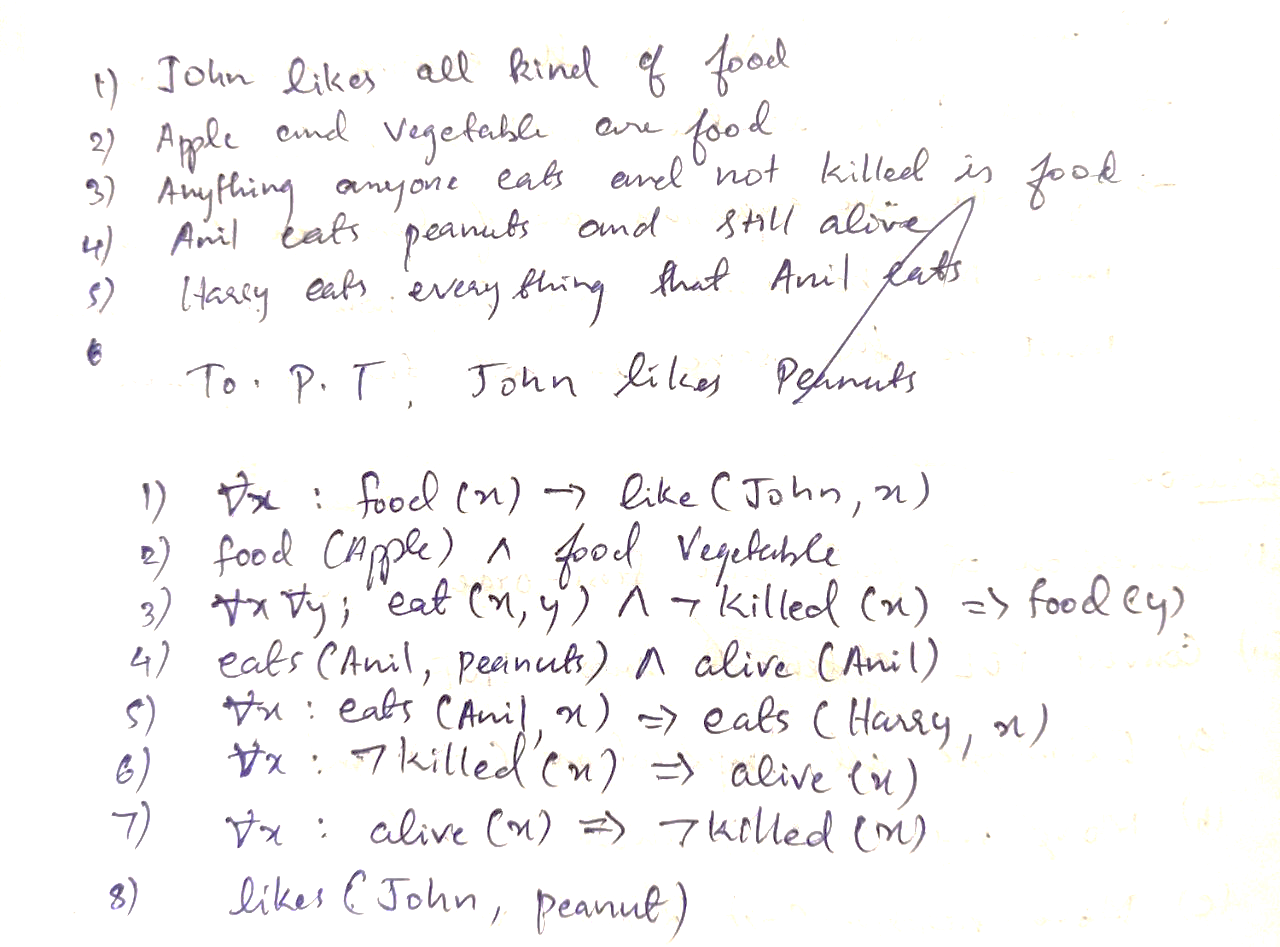 1) John likes all kind of food
2) Apple and vegetable are food
3) Anything anyone eats and not killed is food.
4) Anil eats peanuts and still alive
5) Harry eats every thing that Anil eats
6
To. P. T, John likes Peanuts
1) ∀x : food (x) → like (John, x)
2) food (Apple) ∧ food Vegetable
3) ∀x ∀y ; eat (x, y) ∧ ¬ killed (x) => food (y)
4) eats (Anil, peanuts) ∧ alive (Anil)
5) ∀x : eats (Anil, x) => eats (Harry, x)
6) ∀x : ¬ killed (x) => alive (x)
7) ∀x : alive (x) => ¬ killed (x)
8) likes (John, peanut)